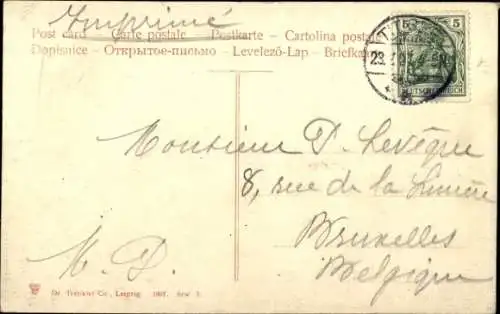 Imprimé
Post card — Carte postale — Postkarte — Cartolina postale
Dopisnice — Открытое-письмо — Levelező-Lap — Briefka
5 5
23.
DEUTSCHES REICH
Monsieur P. Levêque
8, rue de la
Bruxelles
Belgique
M. D.
Dr. Trenkler Co., Leipzig. 1907.